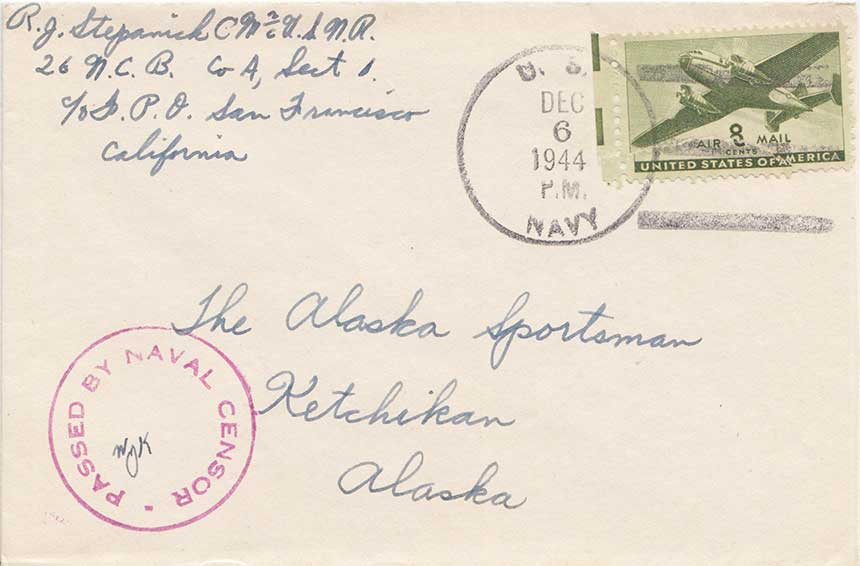 R. J. Stepanich CM2c U.S.N.R.
26 N.C.B. Co A, Sect 1.
c/o F.P.O. San Francisco
California
U. S.
DEC
6
1944
P.M.
NAVY
AIR 8 MAIL
CENTS
UNITED STATES OF AMERICA
The Alaska Sportsman
Ketchikan
Alaska
PASSED BY NAVAL CENSOR
WJK